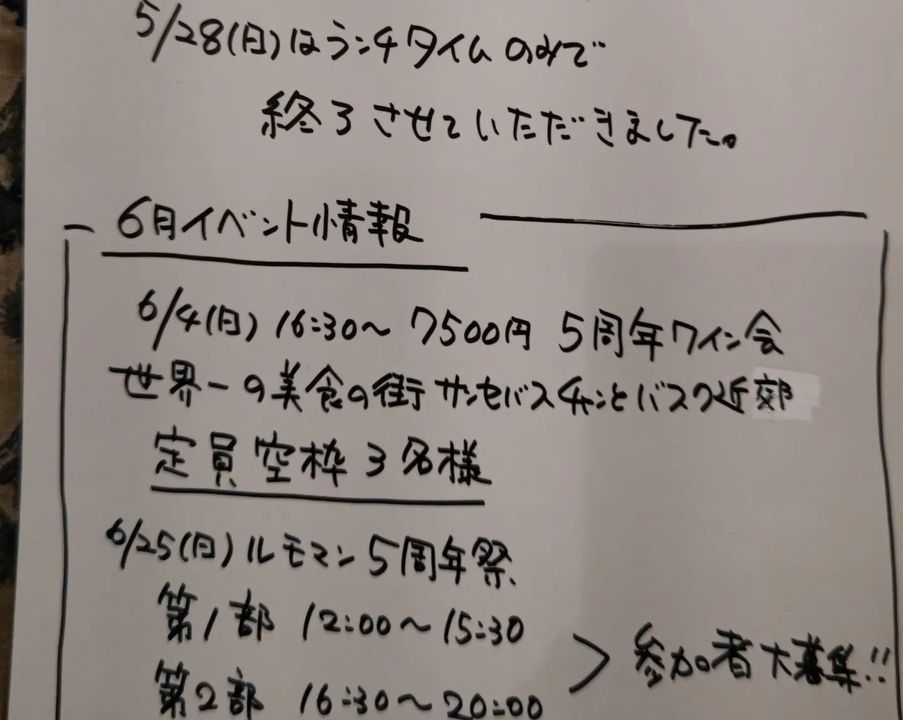 5/28(日)はランチタイムのみで
終了させていただきました。
6月イベント情報
6/4(日) 16:30～ 7500円 5周年ワイン会
世界一の美食の街 サンセバスチャンとバスク近郊
定員空枠3名様
6/25(日)ルモマン5周年祭
第1部 12:00～15:30
第2部 16:30～20:00
> 参加者大募集!!